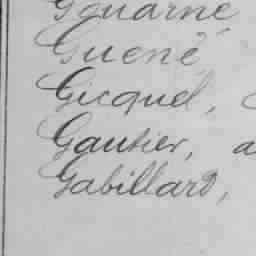 Gouarné
Guené
Gicquel,
Gautier, a
Gabillard,